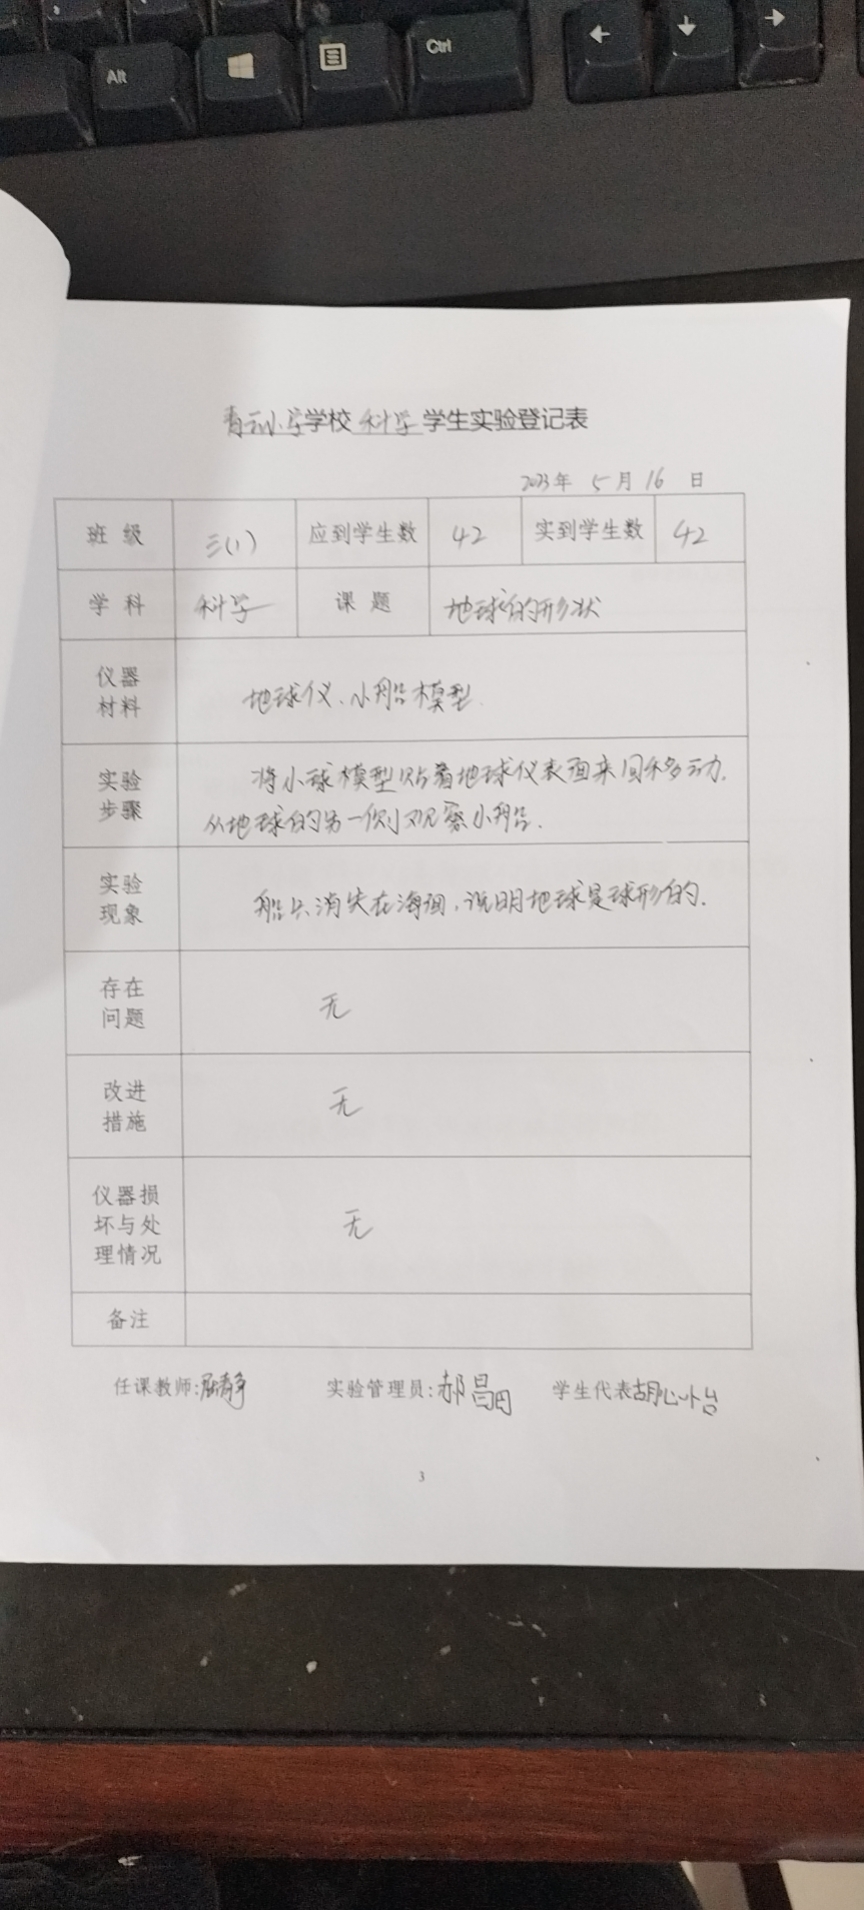 Alt
Ctrl
青云小学学校 科学 学生实验登记表
2023年 5月16日
班级 三(1) 应到学生数 42 实到学生数 42
学科 科学 课题 地球的形状
仪器
材料
地球仪、小船模型.
实验
步骤
将小球模型贴着地球仪表面来回移动.
从地球的另一侧观察小船.
实验
现象
船只消失在海面,说明地球是球形的.
存在
问题
无
改进
措施
无
仪器损
坏与处
理情况
无
备注
任课教师: 实验管理员:郝昌 学生代表胡心怡
3